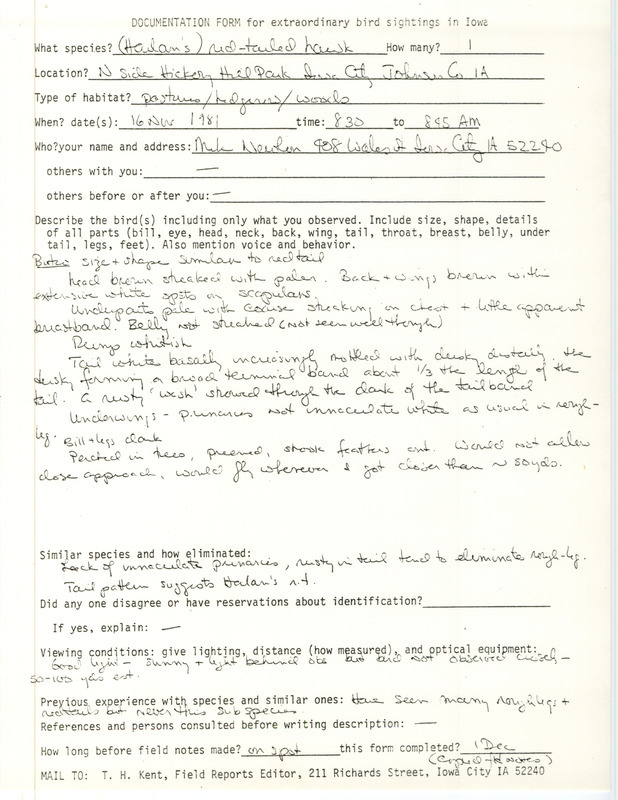 DOCUMENTATION FORM for extraordinary bird sightings in Iowa
What species? (Harlan's) red-tailed hawk How many? 1
Location? N side Hickory Hill Park Iowa City Johnson Co IA
Type of habitat? pastures/hedgerows/woods
When? date(s): 16 Nov 1981 time: 830 to 845 AM
Who?your name and address: Mike Newlon 908 Walnut Iowa City IA 52240
others with you: —
others before or after you: —
Describe the bird(s) including only what you observed. Include size, shape, details
of all parts (bill, eye, head, neck, back, wing, tail, throat, breast, belly, under
tail, legs, feet). Also mention voice and behavior.
Buteo size + shape similar to redtail
head brown streaked with paler. Back + wings brown with
extensive white spots on scapulars.
Underparts pale with coarse streaking on chest + little apparent
breastband. Belly not streaked (not seen well though)
Rump whitish
Tail white basally increasingly mottled with dusky distally. the
dusky forming a broad terminal band about 1/3 the length of the
tail. A rusty 'wash' showed through the dark of the tailband
Underwings - primaries not immaculate white as usual in rough-
leg. Bill + legs dark
Perched in trees, preened, shook feathers out. Would not allow
close approach, would fly whenever I got closer than ~ 50 yds.
Similar species and how eliminated:
Lack of immaculate primaries, rusty in tail tend to eliminate rough-leg.
Tail pattern suggests Harlan's r.t.
Did any one disagree or have reservations about identification?
If yes, explain: —
Viewing conditions: give lighting, distance (how measured), and optical equipment:
Good light - sunny + light behind obs but bird not observed closely -
50-100 yds est.
Previous experience with species and similar ones: Have seen many roughlegs +
redtails but never this subspecies.
References and persons consulted before writing description: —
How long before field notes made? on spot this form completed? 1 Dec
(copied from notes)
MAIL TO: T. H. Kent, Field Reports Editor, 211 Richards Street, Iowa City IA 52240